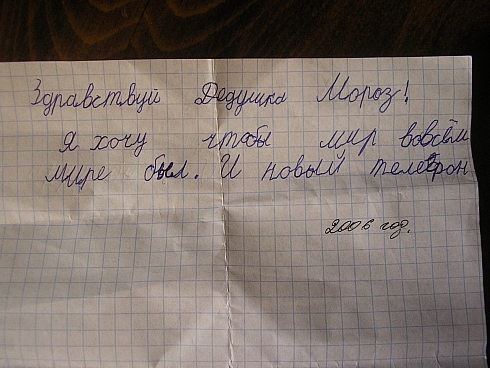 Здравствуй Дедушка Мороз!
Я хочу чтобы мир вовсём
мире был. И новый телефон
2006 год.